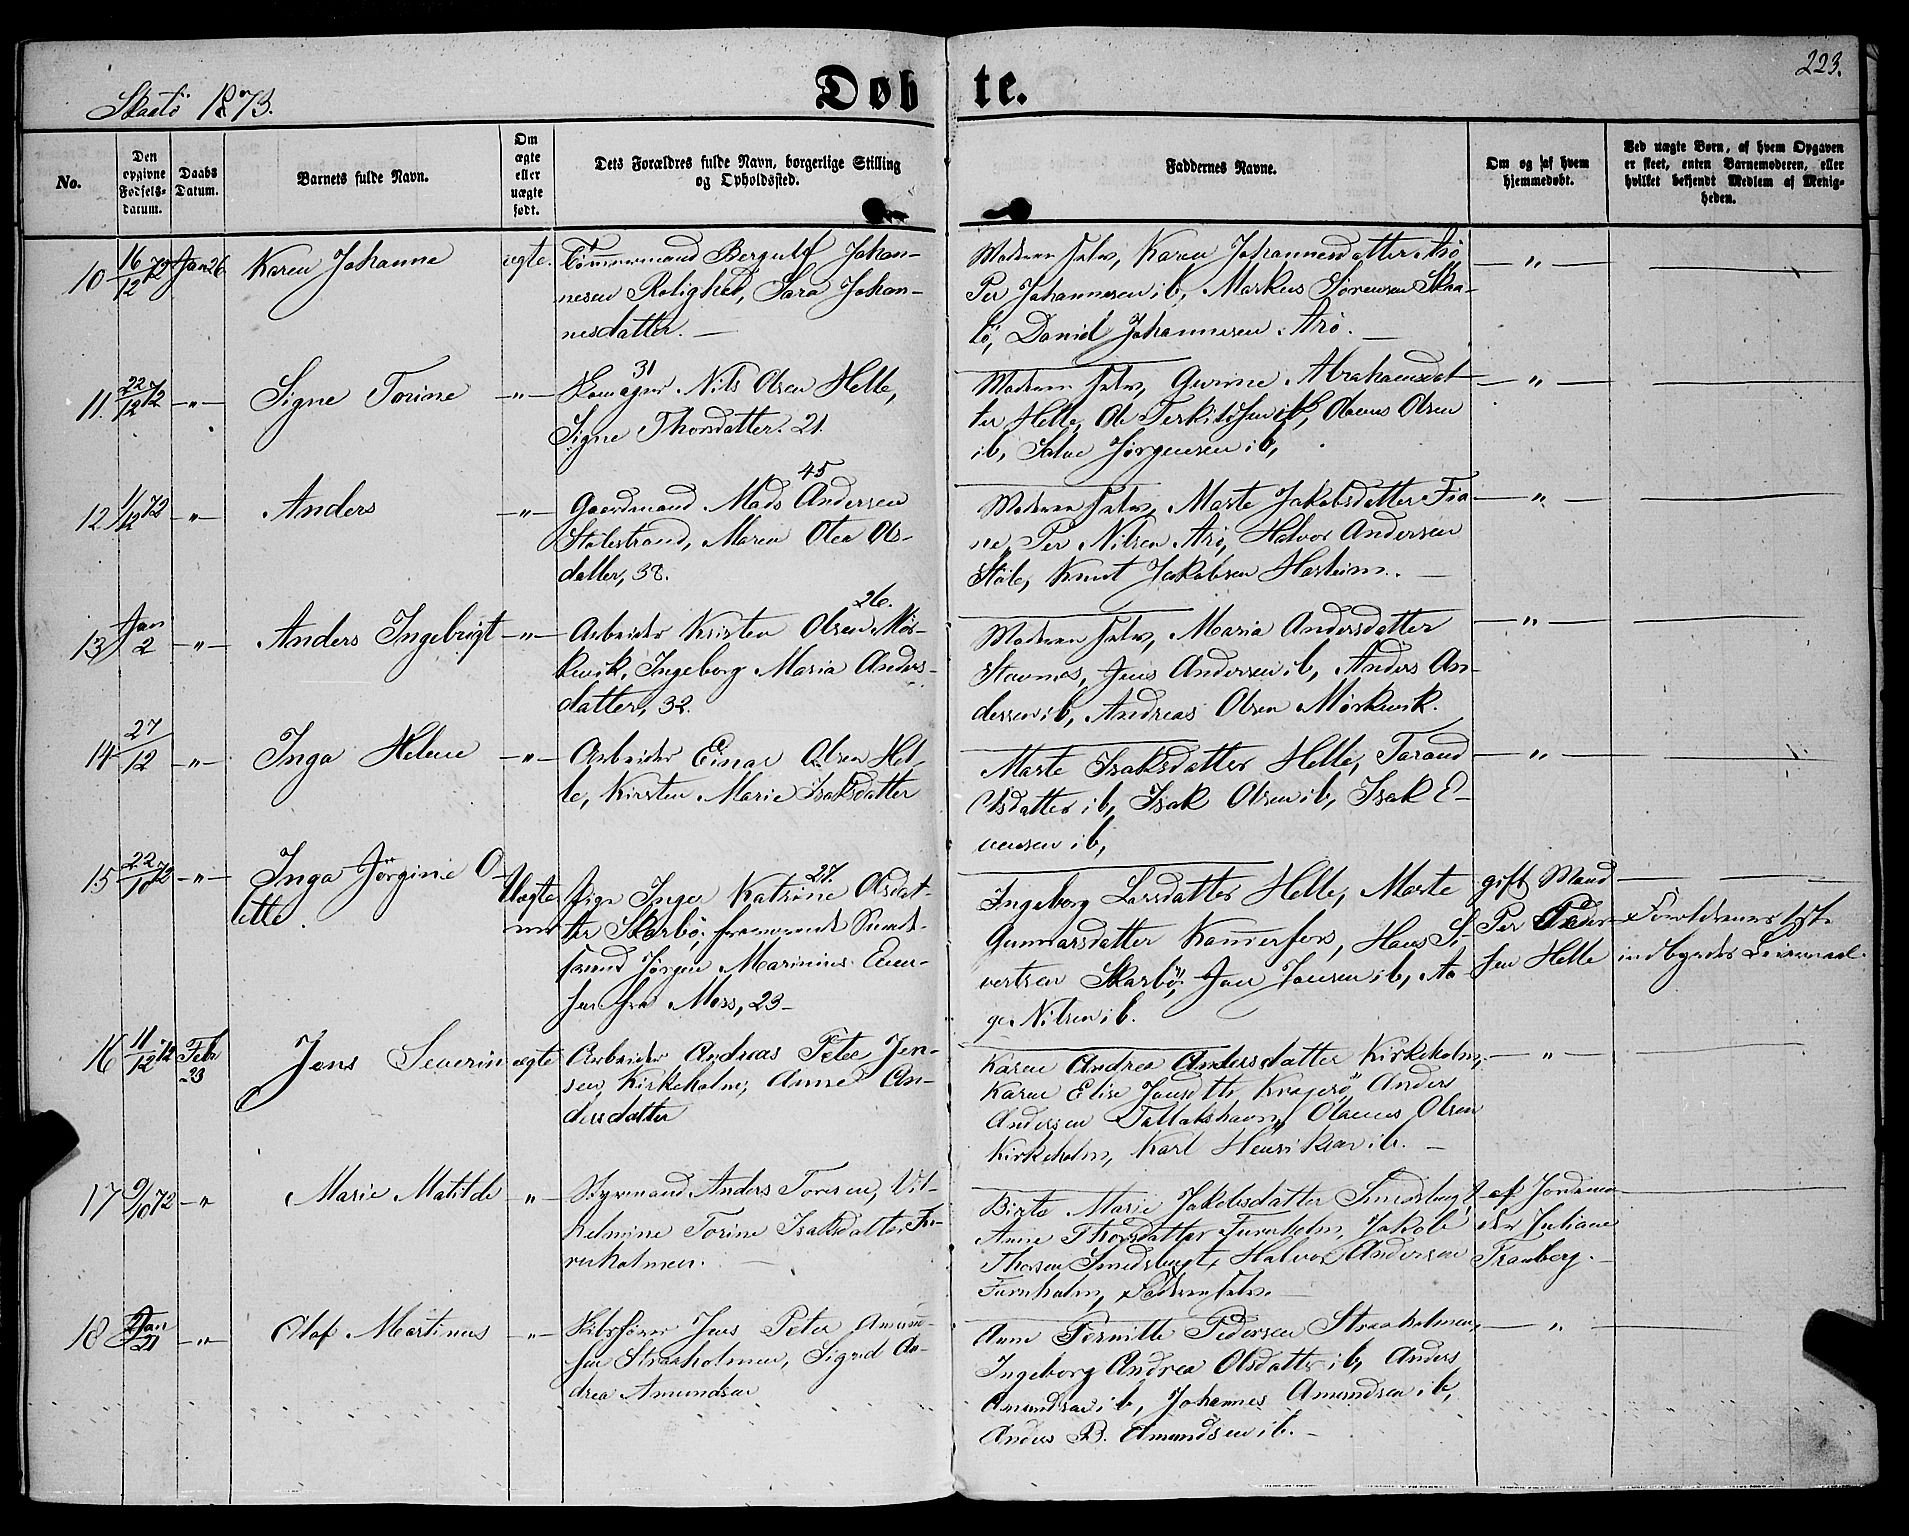 Skaatö 1873.
Döbte.
223.
No.
Den opgivne Fødsels-datum.
Daabs Datum.
Barnets fulde Navn.
Om ægte eller uægte født.
Dets Forældres fulde Navn, borgerlige Stilling og Opholdssted.
Faddernes Navne.
Om og af hvem hjemmedøbt.
Ved uægte Børn, af hvem Opgaven er skeet, enten Barnemoderen, eller hvilket bekjendt Medlem af Menigheden.
10 16/12 72 Jan 26 Karen Johanna ægte. Tömmermand Bergulf Johan-
nesen Rolighed, Sara Johan-
nesdatter. —
Moderen selv, Karen Johannesdatter Arö,
Per Johannesen ib, Markus Sörensen Skaa-
tö, Daniel Johannesen Arö. —
— " —
11. 22/12 72 — " — Signe Torine — " — 31 Nils Olsen Helle,
Signe Thorsdatter. 21.
Moderen selv, Gurine Abrahamsdat-
ter Helle, Ole Terkildsen ib, Olaves Olsen
ib, Salve Jørgensen ib,
— " —
12 1/12 72 — " — Anders — " — Gaardmand Mads Andersen 45
Stölestrand, Maren Olea Ols-
datter, 38.
Moderen selv, Marte Jakobsdatter Fia-
ne, Per Nilsen Arö, Halvor Andersen
Støle, Knut Jakobsen —
— " —
13 Jan 2 — " — Anders Ingebrigt — " — Arbeider Kristen Olsen Mör- 26.
kevik, Ingeborg Maria Anders-
datter, 32.
Moderen selv, Maria Andersdatter
Stavnes, Jens Andersen ib, Anders An-
dersen ib, Andreas Olsen Mörkevik.
— " —
14 27/12 — " — Inga Helene — " — Arbeider Einar Olsen Hel-
le, Kirsten Marie Isaksdatter
Marte Isaksdatter Helle, Tarand
Olsdatter ib, Isak Olsen ib, Isak E-
vensen ib,
— " —
15 22/10 72 — " — Inga Jörgine O-
lette.
Uægte
Pige Inger Katrine Olsdat- 27.
ter Skarbö,
Jørgen Marinius
fra Moss, 23 —
Ingeborg Larsdatter Helle, Marte
Gunnarsdatter Kammerfos, Hans Si-
vertsen Skarbö, Jan Jansen ib, Aa-
ge Nilsen ib.
gift Mand
Per Peder-
sen Helle
Forældrenes 1ste
indbyrdes Leiermaal.
16 11/12 72 Feb 23 Jens Severin ægte Arbeider Andreas Peter Jen-
sen Kirkeholm, Anne An-
dersdatter
Karen Andrea Andersdatter Kirkeholm,
Karen Elise Jansdtr Kragerö, Anders
Andersen Tallakshavn, Olaves Olsen
Kirkeholm, Karl Henriksen ib. —
— " —
17 9/10 72 — " Marie Matilde — " — Styrmand Anders Toresen, Vil-
helmine Torine Isaksdatter Fu-
ruholmen. —
Birte Marie Jakobsdatter Smedsbugt,
Anne Thorsdatter Furuholm, Jakob
Thorsen Smedsbugt, Halvor Andersen
Furuholm, Faderen selv.
af Jordemo-
der Juliane
Tranberg.
18 Jan 21 — " — Olaf Martinus — " — Skibsfører Jens Peter Amund-
sen Straaholmen, Sigrid An-
drea Amundsen
Anne Pernille Pedersen Straaholmen,
Ingeborg Andrea Olsdatter ib, Anders
Amundsen ib, Johannes Amundsen ib,
Anders B. Amundsen ib. —
— " —